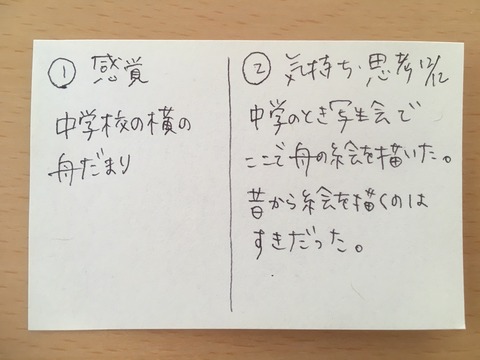 ① 感覚
中学校の横の
舟だまり
② 気持ち・思考 12/12
中学のとき写生会で
ここで舟の絵を描いた。
昔から絵を描くのは
すきだった。